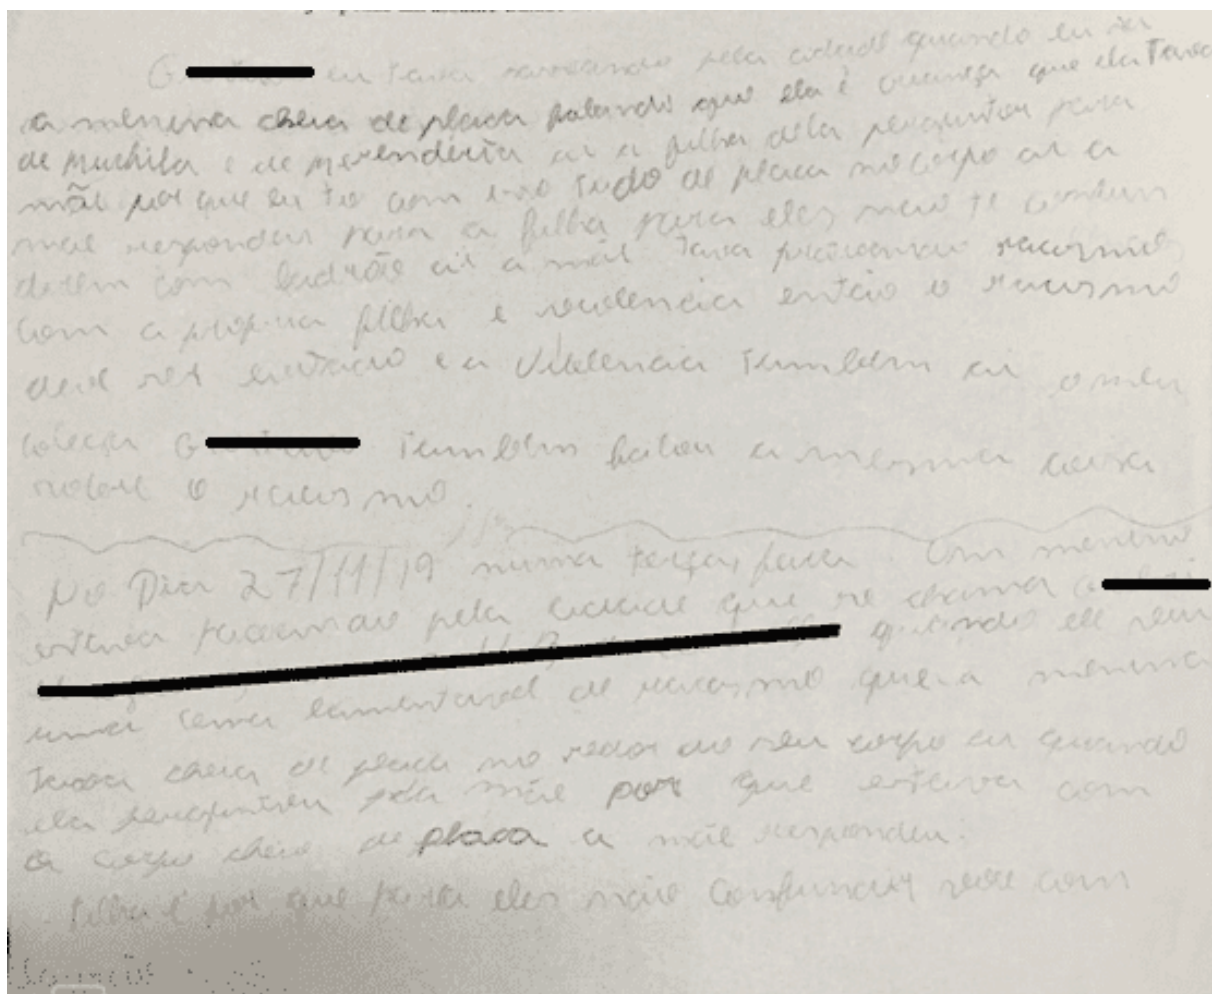 eu tava passeando pela cidade quando eu vi
a menina cheia de placa falando que ela é criança que ela tava
de muchila e de merenderia ai a filha dela perguntar para
mãe por que eu to com isso tudo de placa no corpo ai a
mãe responder para a filha para eles não te
com ladrão ai a mãe tava praticando racismo
com a propria filha e violencia então o racismo
deve ser evitado e a violencia tambem ai o meu
colega G tambem falou a mesma coisa
sobre o racismo.
No Dia 27/11/19 numa terça feira. Um menino
estava passeando pela cidade que se chama
quando ele viu
uma cena lamentavel de racismo que a menina
tava cheia de placa no redor do seu corpo ai quando
ela perguntou pra mãe por que estava com
o corpo cheio de placa a mãe respondeu:
- filha é por que para eles não confundir voce com